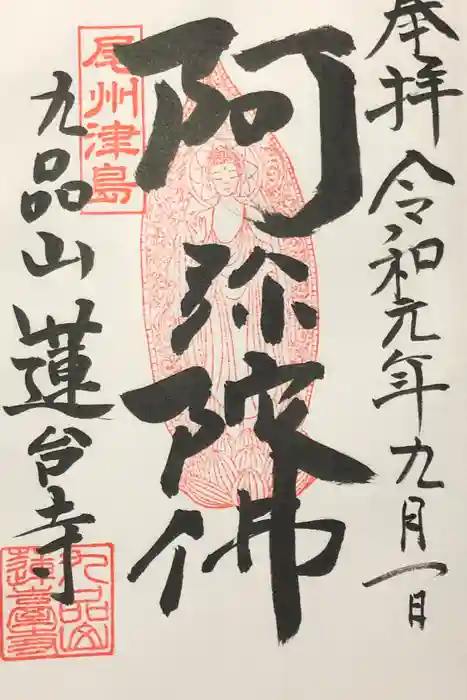 奉拝 令和元年九月一日
阿弥陀佛
尾州津島
九品山 蓮台寺
九品山
蓮臺寺